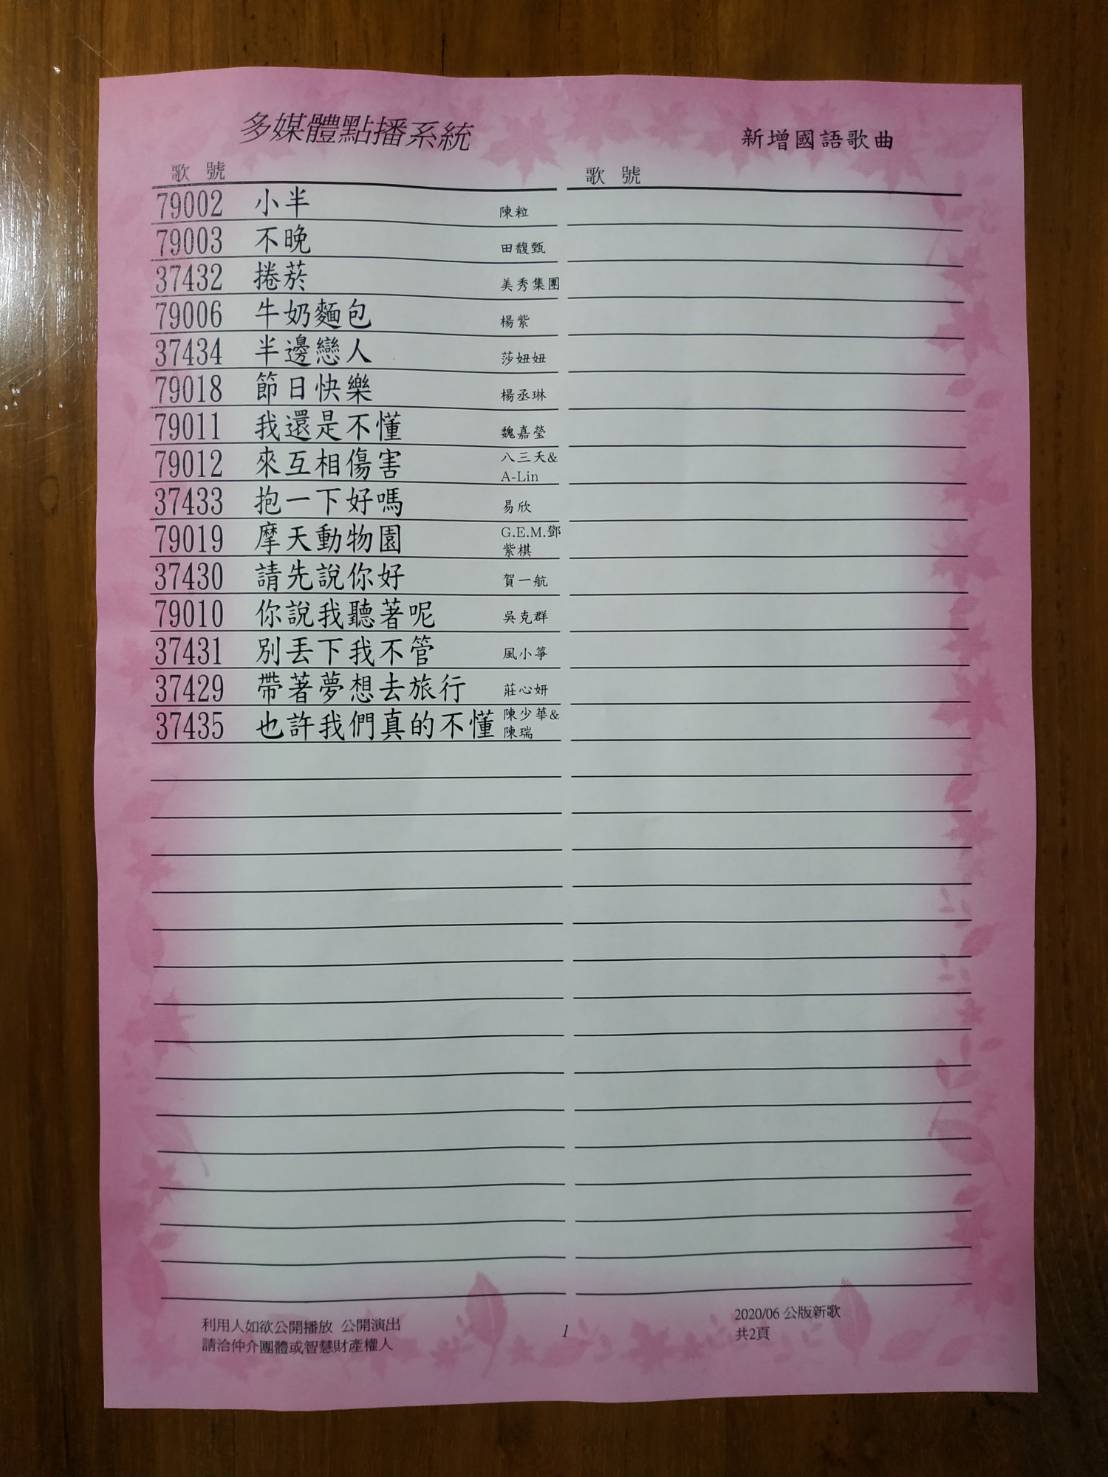 多媒體點播系統
新增國語歌曲
歌 號
歌 號
79002 小半 陳粒
79003 不晚 田馥甄
37432 捲菸 美秀集團
79006 牛奶麵包 楊紫
37434 半邊戀人 莎妞妞
79018 節日快樂 楊丞琳
79011 我還是不懂 魏嘉瑩
79012 來互相傷害 八三夭&
A-Lin
37433 抱一下好嗎 易欣
79019 摩天動物園 G.E.M.鄧
紫棋
37430 請先說你好 賀一航
79010 你說我聽著呢 吳克群
37431 別丟下我不管 風小箏
37429 帶著夢想去旅行 莊心妍
37435 也許我們真的不懂 陳少華&
陳瑞
利用人如欲公開播放 公開演出
請洽仲介團體或智慧財產權人
1
2020/06 公版新歌
共2頁